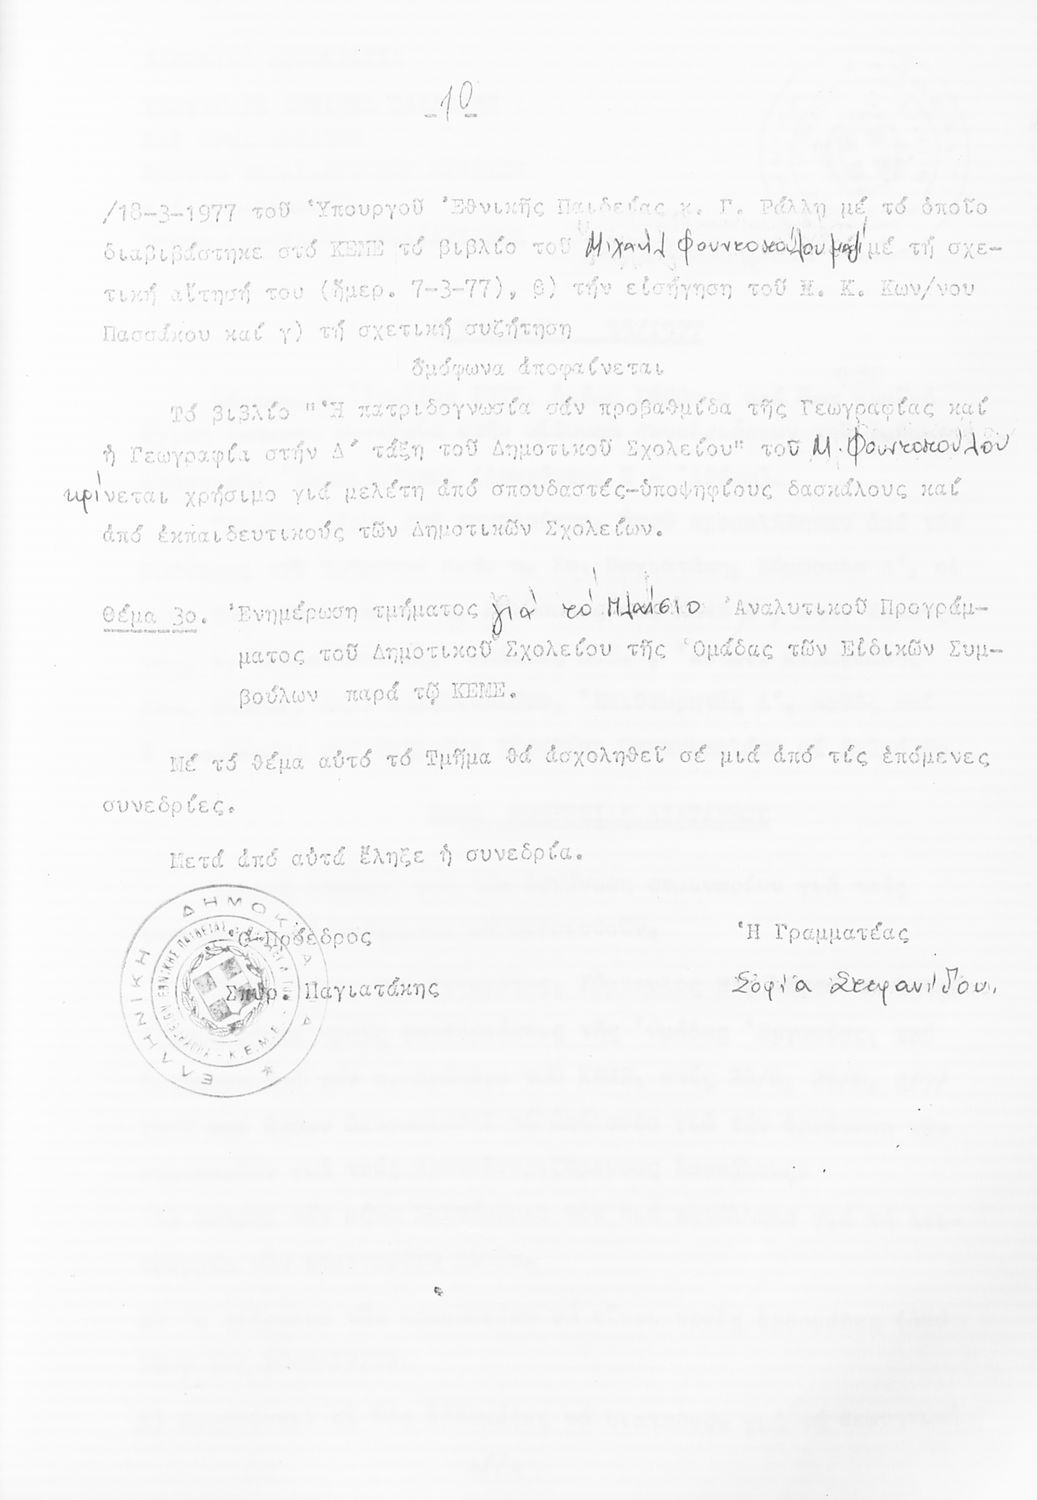 -10-
/18-3-1977 τοῦ Ὑπουργοῦ Ἐθνικῆς Παιδείας κ. Γ. Ράλλη μέ τό ὁποῖο
διαβιβάστηκε στό ΚΕΜΕ τό βιβλίο τοῦ Μιχαήλ Φουντοπούλου μαζί μέ τή σχε-
τική αἴτησή του (ἡμερ. 7-3-77), β) τήν εἰσήγηση τοῦ κ. Κ. Κων/νου
Πασσάκου καί γ) τή σχετική συζήτηση
ὁμόφωνα ἀποφαίνεται
Τό βιβλίο "Ἡ πατριδογνωσία σάν προβαθμίδα τῆς Γεωγραφίας καί
ἡ Γεωγραφία στήν Δ΄ τάξη τοῦ Δημοτικοῦ Σχολείου" τοῦ Μ. Φουντοπούλου
κρίνεται χρήσιμο γιά μελέτη ἀπό σπουδαστές-ὑποψηφίους δασκάλους καί
ἀπό ἐκπαιδευτικούς τῶν Δημοτικῶν Σχολείων.
Θέμα 3ο. Ἐνημέρωση τμήματος γιά τό Πλαίσιο Ἀναλυτικοῦ Προγράμ-
ματος τοῦ Δημοτικοῦ Σχολείου τῆς Ὁμάδας τῶν Εἰδικῶν Συμ-
βούλων παρά τῷ ΚΕΜΕ.
Μέ τό θέμα αὐτό τό Τμῆμα θά ἀσχοληθεῖ σέ μιά ἀπό τίς ἑπόμενες
συνεδρίες.
Μετά ἀπό αὐτά ἔληξε ἡ συνεδρία.
Ὁ Πρόεδρος
Ἡ Γραμματέας
Σπυρ. Παγιατάκης
Σοφία Στεφανίδου.
ΕΛΛΗΝΙΚΗ ΔΗΜΟΚΡΑΤΙΑ
Κ.Ε.Μ.Ε.